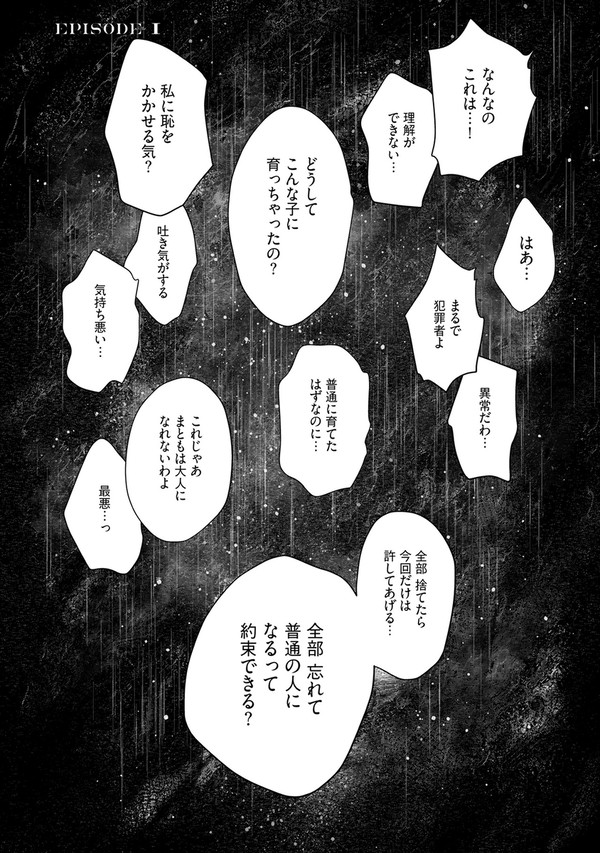 EPISODE 1
なんなの
これは…！
理解が
できない…
私に恥を
かかせる気？
どうして
こんな子に
育っちゃったの？
はあ…
吐き気がする
気持ち悪い…
まるで
犯罪者よ
異常だわ…
普通に育てた
はずなのに…
これじゃあ
まともは大人に
なれないわよ
最悪…っ
全部 捨てたら
今回だけは
許してあげる…
全部 忘れて
普通の人に
なるって
約束できる？